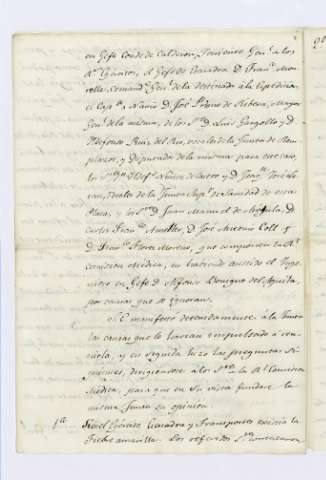 en Gefe Conde de Calderon, Teniente Gen.l a los
R.s Exercitos, el Gefe de Escuadra D. Fran.co Mou-
relle, Comand.te Gen.l de la destinada à la Expedicion,
el Cap.n de Navio D. José Primo de Ribera, Mayor
Gen.l de la misma, de los S.res D. Luis Gargollo, y D.
Ildefonso Ruiz del Rio, vocales de la Junta de Reem-
plazos, y Diputados de la misma para este caso,
los S.res D. Nuñez de Castro y D. Joaq.n
vocales de la Junta Sup.r de Sanidad de esta
Plaza, y los S.res D. Juan Manuel de Arejula, D.
Carlos Fran.co Ameller, D. José Antonio Coll y
D. Fran.co Flores Moreno, que componen la R.l
Comision Medica, no habiendo asistido el Inge-
niero en Gefe D. Alfonso Benigno del Aguila,
por causas que se ignoran.
el E. manifestó detenidamente à la Junta
las causas que lo habian impulsado à con-
vocarla, y en seguida hizo las preguntas si-
guientes, dirigiendose à los S.res de la R.l Comision
Medica, para que en su vista fundase la
misma Junta su opinion.
1.a Si en el Exercito, Escuadra y Transportes existia la
Fiebre amarilla. Los referidos S.res contestaron